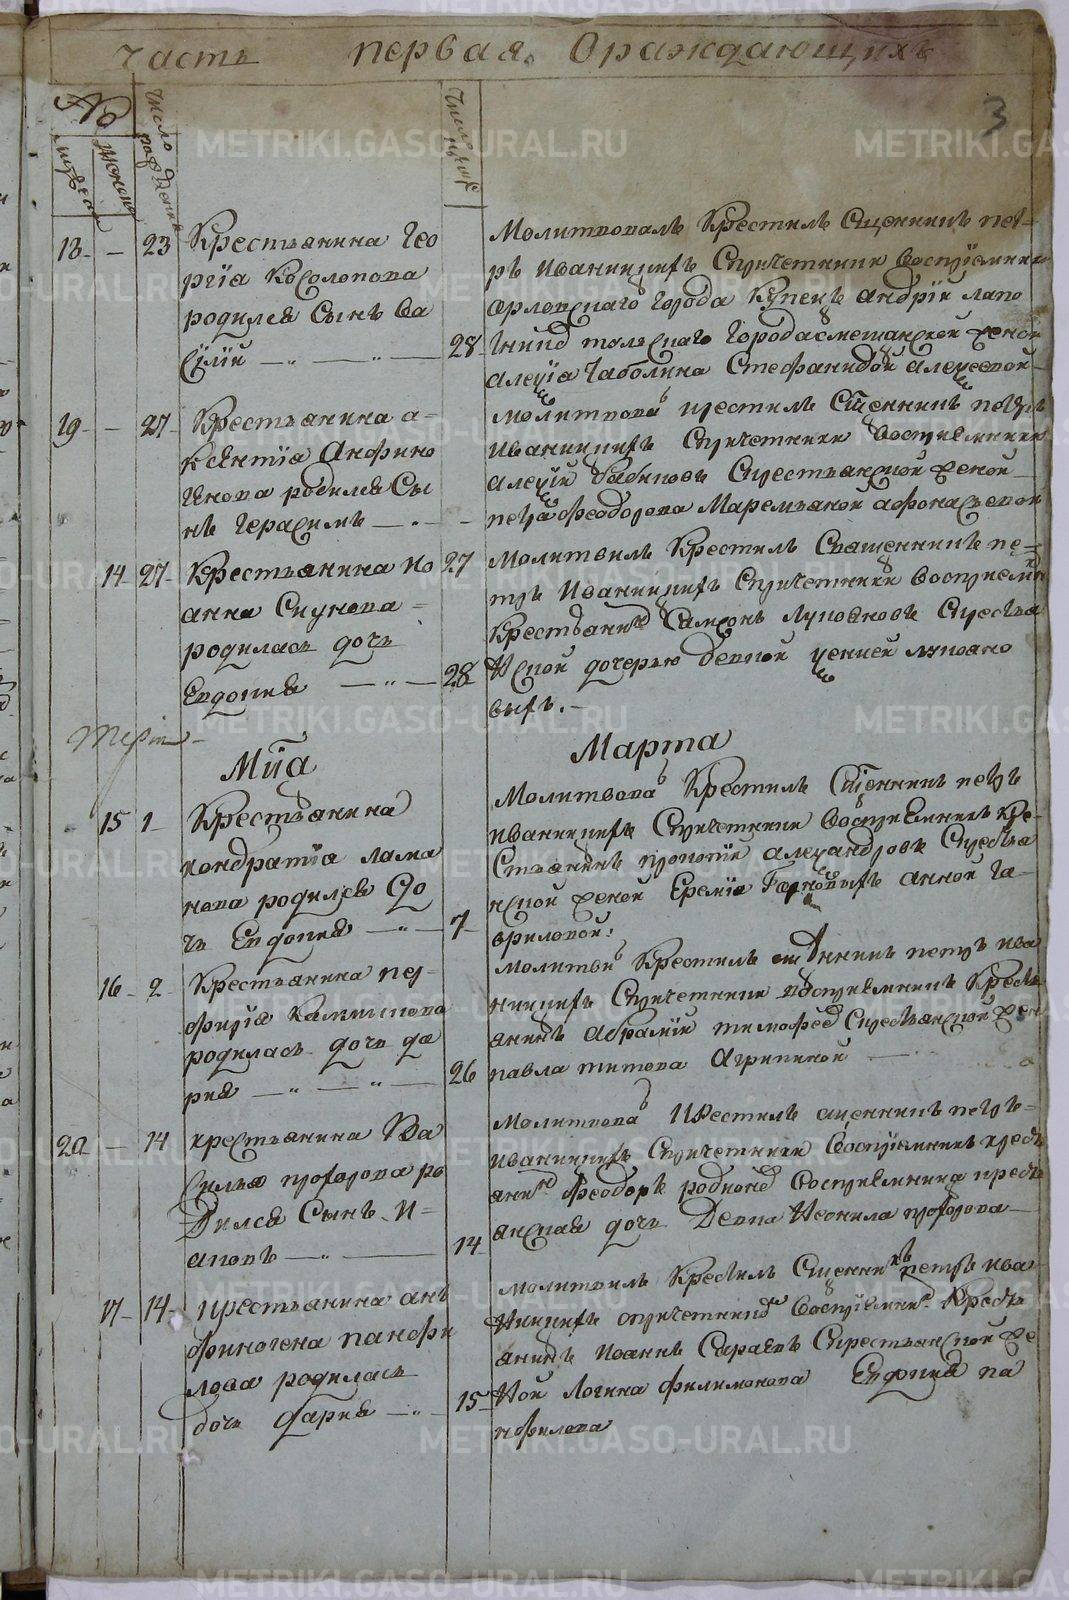 часть первая. Ораждающихъ
3
№
число рождения
мужеска
женска
18 - 23 Крестьянина Гео
ргіа Косолопова
родился Сынъ Ва
Силій 28
Молитвовалъ Крестилъ Сщенникъ пет
ръ Иваницкихъ Спричетники воспріемники
Орловскаго города Купецъ андрій лапо
города смещанской женой
алексіа Чаболина Стефанидой алексеевой
19 - 27 Крестьянина а-
ксентіа Анфино
генова родился Сы
нъ Герасимъ
молитвова крестилъ Сщенникъ петръ
Иваницкихъ Спричетники воспріемники
алексій бабиновъ Скрестьянской женой
петра феодорова Маремьяной афонасьевой
14 27 Крестьянина Ио
анна Скунова
родилась дочь
Евдокия
27
28
Молитвилъ Крестилъ Священникъ пе-
тръ Иваницкихъ Спричетники воспріемн
Крестьанинъ Самсонъ Лупановъ Скрестьа
нской дочерью девкой ксенией лупано
выхъ.
Мца Марта
15 1 Крестьянина
кондратіа лама
нова родился До
чь Евдокия 7
Молитвова Крестилъ Сщенникъ петръ
иваницкихъ Спричетники воспріемникъ Кре-
Стьянинъ прокопій александровъ Скрестьа
нской женой Еремія анной га-
вриловой.
16 2 Крестьянина пор-
фиріа Калинина
родилась дочь да
рия 26
молитви Крестилъ сщенникъ петръ ива
ницкихъ Спричетники воспріемникъ Крестьа
анинъ абрамій тимофеев Скрестьянской жен
павла титова Агрипиной
20 14 крестьянина Ва
силья прохорова ро
Дился Сынъ И-
аковъ 14
Молитвова Крестилъ сщенникъ петръ
иваницкихъ Спричетники воспріемникъ крестьа
анинъ феодоръ родионов воспріемница кресть
анская дочь Девка Неонила прохорова
17 14 крестьянина анъ
финогена панфи
лова родилась
дочь дария 15
молитвилъ Крестилъ Сщенникъ петръ ива
ницкихъ спричетники воспріемник Кресть
анинъ Иоаннъ Сараевъ Скрестьянской же
ной Логина филимонова Евдокия па
нфилова
METRIKI.GASO-URAL.RU